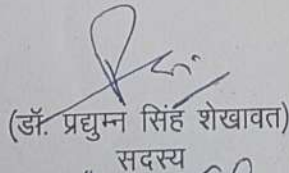 (डॉ. प्रद्युम्न सिंह शेखावत)
सदस्य